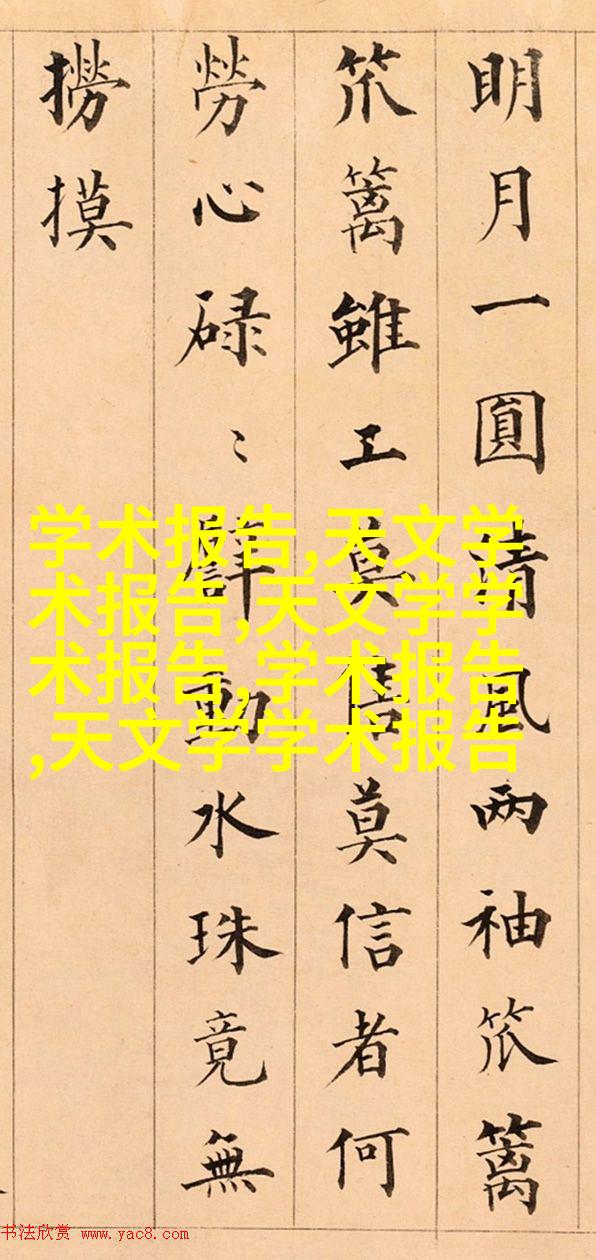 明月一圓清風两袖笊籬
笊籬雖工莫售莫信者何
勞心碌〻動水珠竟無
撈摸
学术报告,天文学
术报告,天文学学
术报告,学术报告
,天文学学术报告
书法欣赏 www.yac8.com